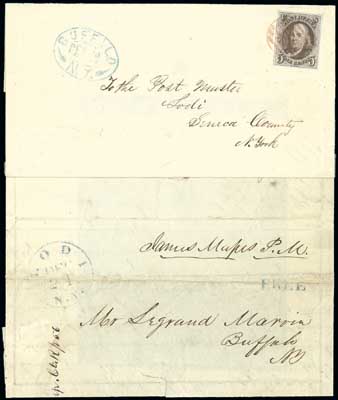 BUFFALO
N.Y.
5 5
To the Post Master
Lodi
Seneca County
N. York
LODI
James Mapes P. M.
FREE
Mr Legrand Marvin
Buffalo
NY